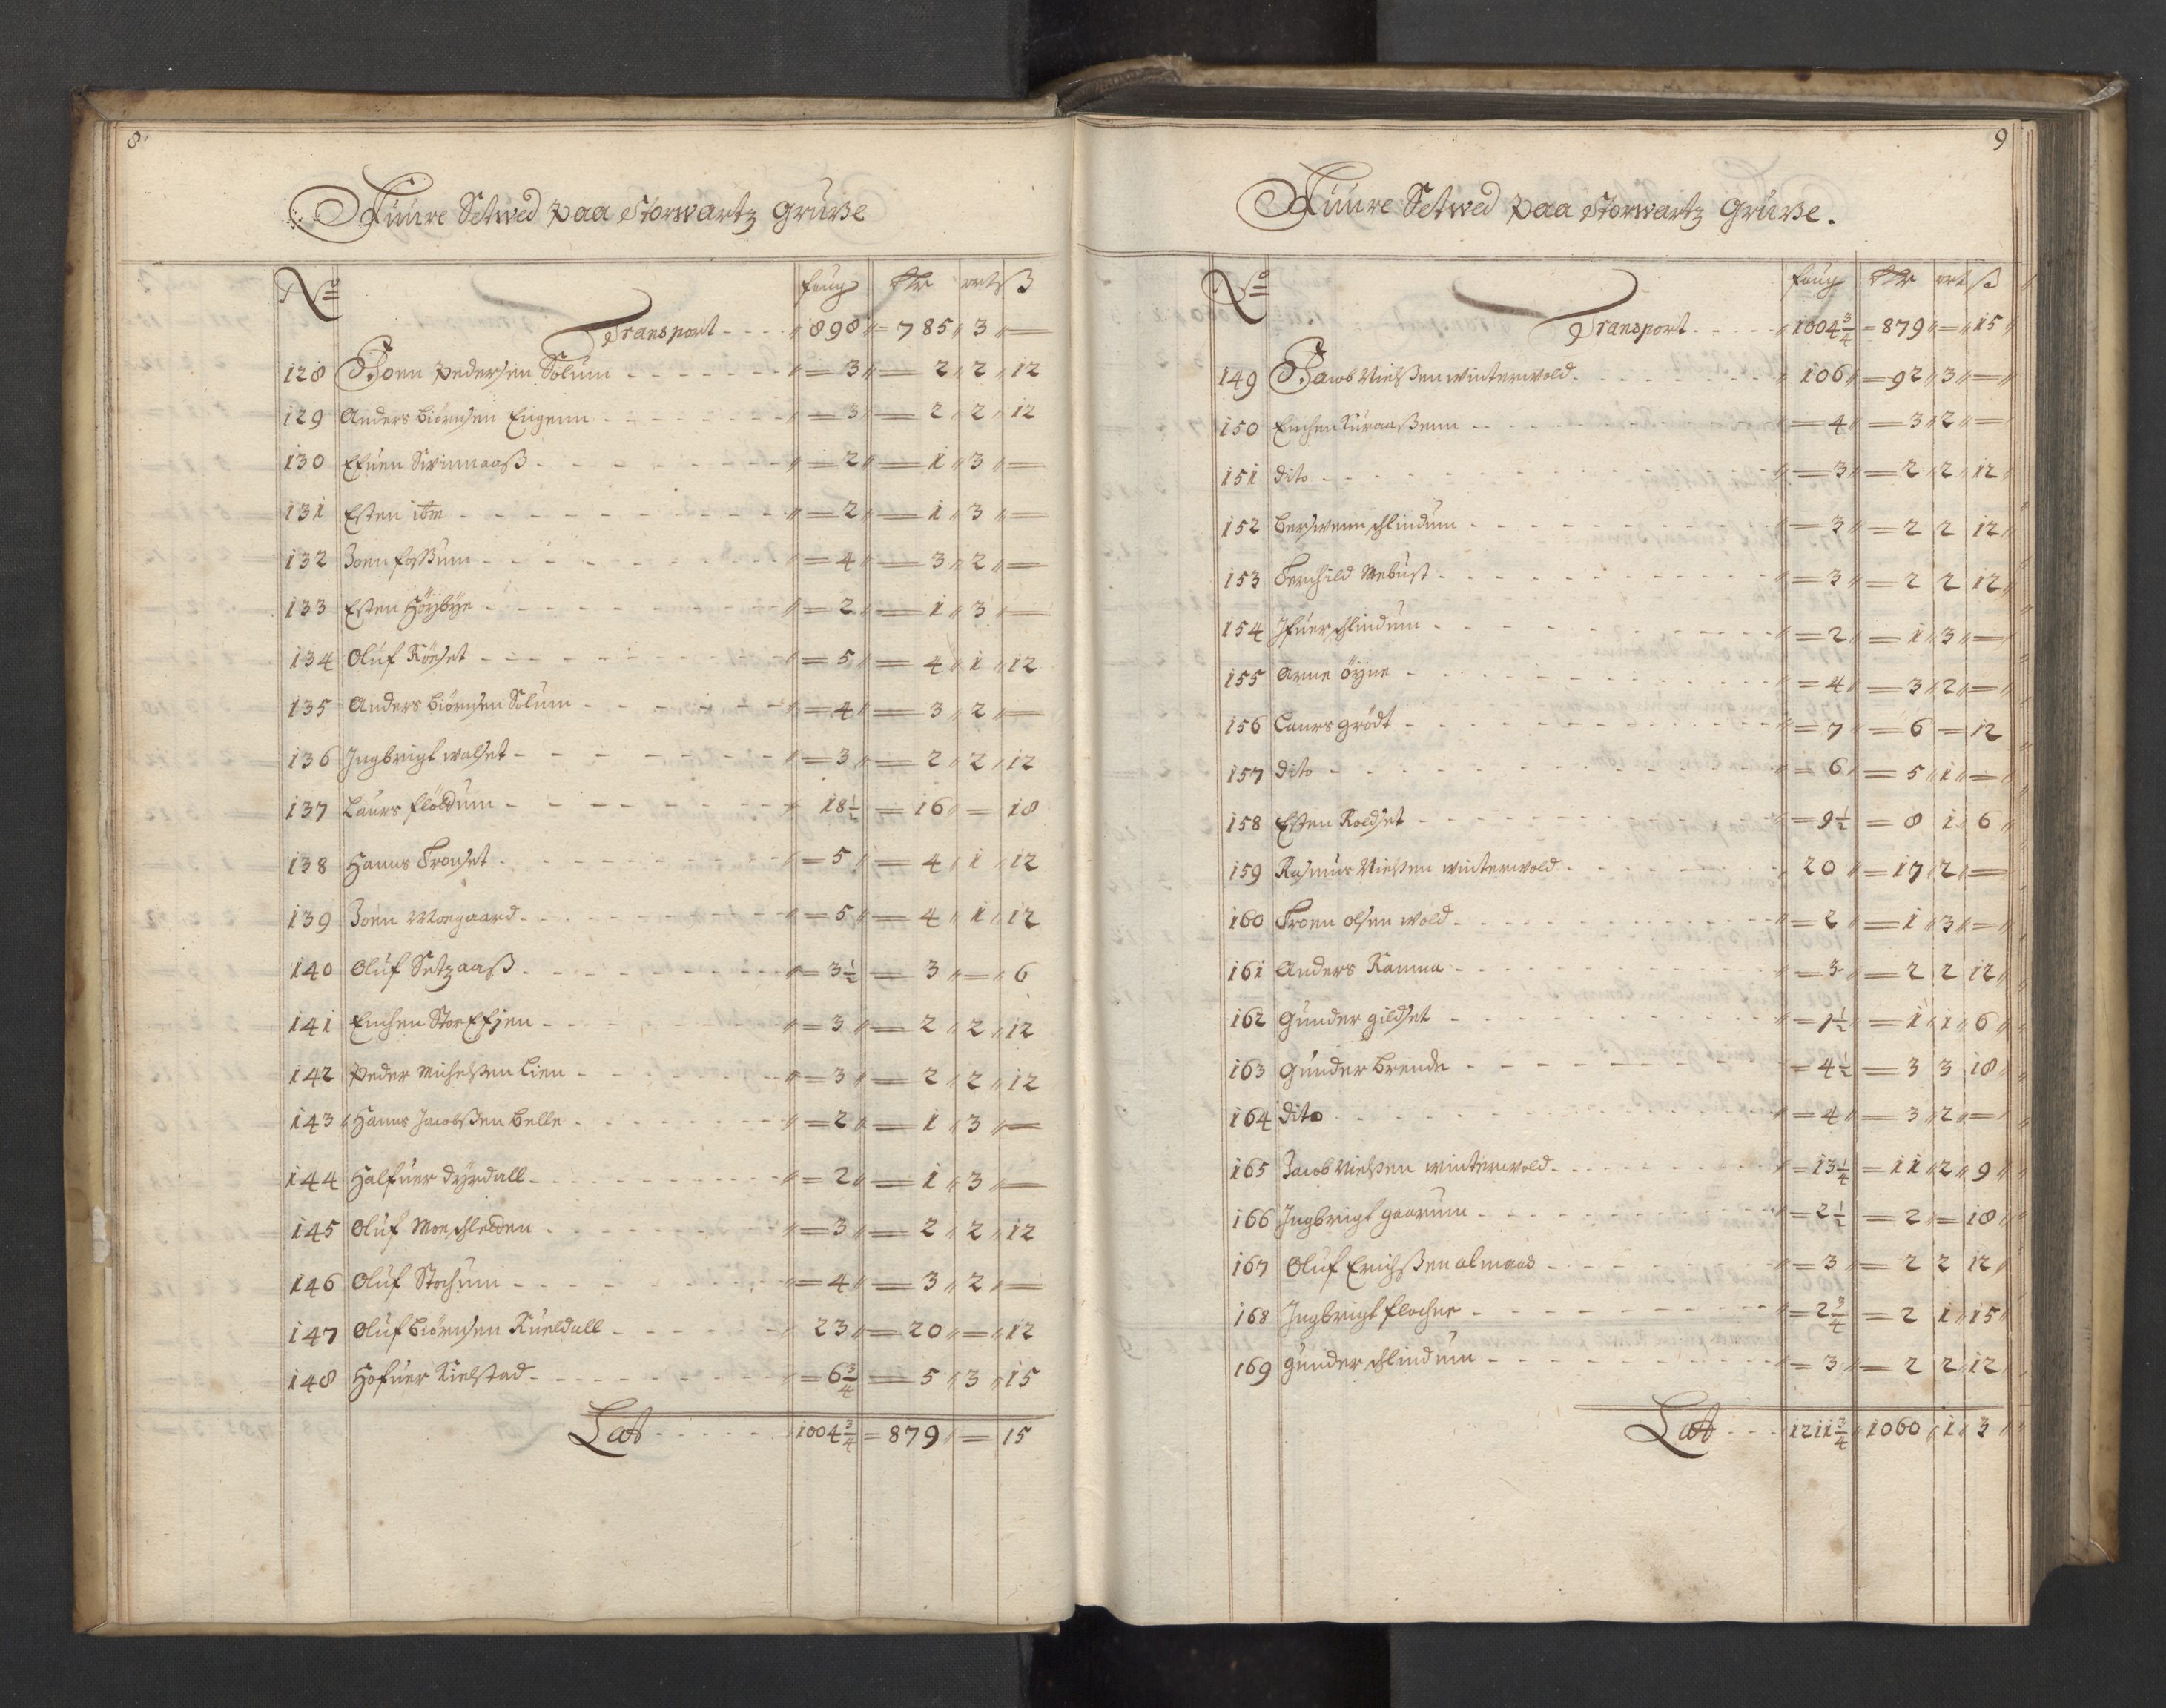 8
Fuure Setwed paa Storwartz Gruße
No faug Rdr ort ß
Transport 898 785 3 —
128 Joen Pedersen Solum 3 2 2 12
129 Anders Biørnsen Engenn 3 2 2 12
130 Efuen Svinnaaß 2 1 3 —
131 Esten ibm 2 1 3 —
132 Joen Foßum 4 3 2 —
133 Esten Höybye 2 1 3 —
134 Oluf Röeset 5 4 1 12
135 Anders Biörnsen Solum 4 3 2 —
136 Ingbrigt walset 3 2 2 12
137 Laurs Flöddum 18½ 16 — 18
138 Hanns Fronset 5 4 1 12
139 Joen Moegaard 5 4 1 12
140 Oluf Setzaaß 3½ 3 — 6
141 Enchen Stor Efjen 3 2 2 12
142 Peder Michelßen Lien 3 2 2 12
143 Hanns Jacobßen Belle 2 1 3 —
144 Halfuer Dyrdall 2 1 3 —
145 Oluf Moeschledden 3 2 2 12
146 Oluf Stochum 4 3 2 —
147 Oluf Biörnsen Kueldall 23 20 — 12
148 Hofuer Kielstad 6¾ 5 3 15
Lat 1004¾ 879 — 15
9
Fuure Setwed paa Storwartz Gruße.
No faug Rdr ort ß
Transport 1004¾ 879 — 15
149 Jacob Nielßen winterwold 106 92 3 —
150 Enchen Kuraaßenn 4 3 2 —
151 dito 3 2 2 12
152 Berswenn schlindum 3 2 2 12
153 Ferchild Mebust 3 2 2 12
154 Ifuer schlindum 2 1 3 —
155 Arne öyne 4 3 2 —
156 Laurs grödt 7 6 — 12
157 dito 6 5 1 —
158 Esten Roldset 9½ 8 1 6
159 Rasmus Nielßen winterwold 20 17 2 —
160 Froen olsen wold 2 1 3 —
161 Anders Ramma 3 2 2 12
162 Gunder gildset 1½ 1 1 6
163 Gunder Brende 4½ 3 3 18
164 dito 4 3 2 —
165 Jacob Nielßen winterwold 13¼ 11 2 9
166 Ingbrigt gaarum 2½ 2 — 18
167 Oluf Erichßen almaas 3 2 2 12
168 Ingbrigt Flochne 2¾ 2 1 15
169 gunder schlindum 3 2 2 12
Lat 1211¾ 1060 1 3